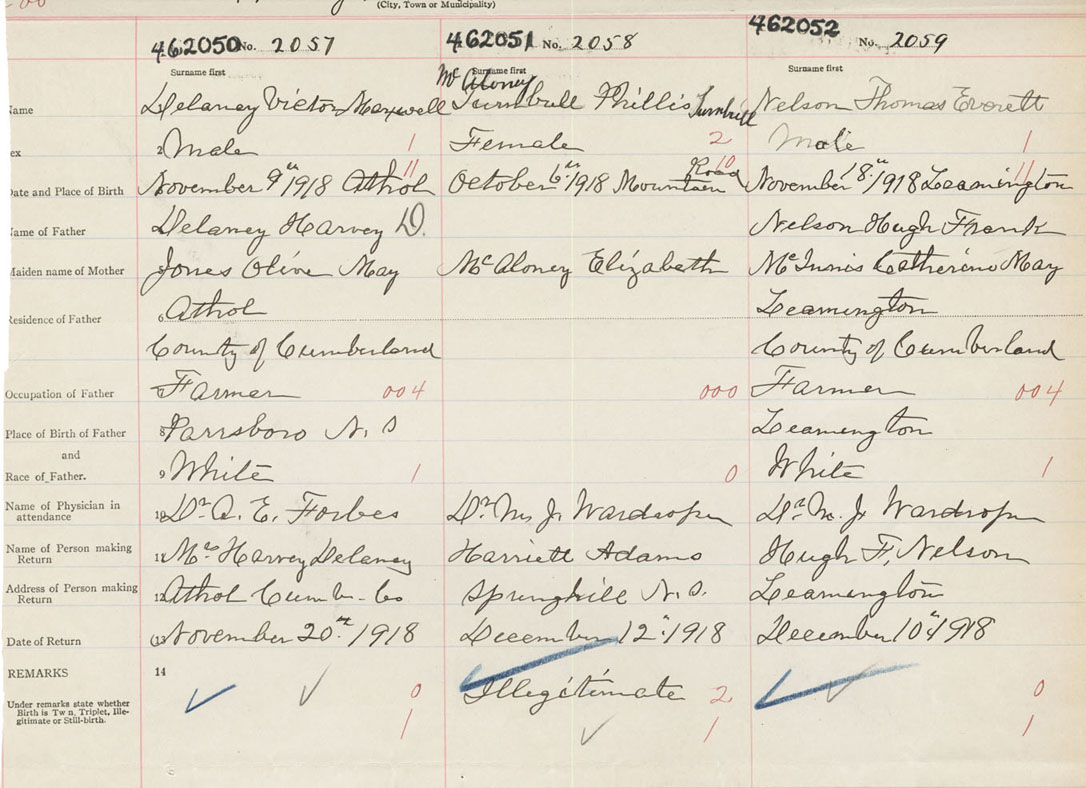 (City, Town or Municipality)
462050 No. 2057 462051 No. 2058 462052 No. 2059
Surname first Surname first Surname first
Mc Aloney
Name Delaney Victor Maxwell Turnbull Phillis Turnbull Nelson Thomas Everett
Sex 2 Male 1 Female 2 Male 1
11 Road 10 11
Date and Place of Birth November 9th 1918 Athol October 6th 1918 Mountain November 18th 1918 Leamington
Name of Father Delaney Harvey D. Nelson Hugh Frank
Maiden name of Mother Jones Olive May McAloney Elizabeth McInnis Catherine May
Residence of Father 6 Athol Leamington
County of Cumberland County of Cumberland
Occupation of Father Farmer 004 000 Farmer 004
Place of Birth of Father 8 Parrsboro N.S Leamington
and
Race of Father. 9 White 1 0 White 1
Name of Physician in attendance 10 Dr. A. E. Forbes Dr. M. J. Wardroper Dr. M. J. Wardroper
Name of Person making Return 11 Mrs Harvey Delaney Harriett Adams Hugh F. Nelson
Address of Person making Return 12 Athol Cumb. Co Springhill N.S. Leamington
Date of Return 13 November 20th 1918 December 12" 1918 December 10" 1918
REMARKS 14
Under remarks state whether Birth is Twin, Triplet, Illegitimate or Still-birth. 0 Illegitimate 2 0
1 1 1